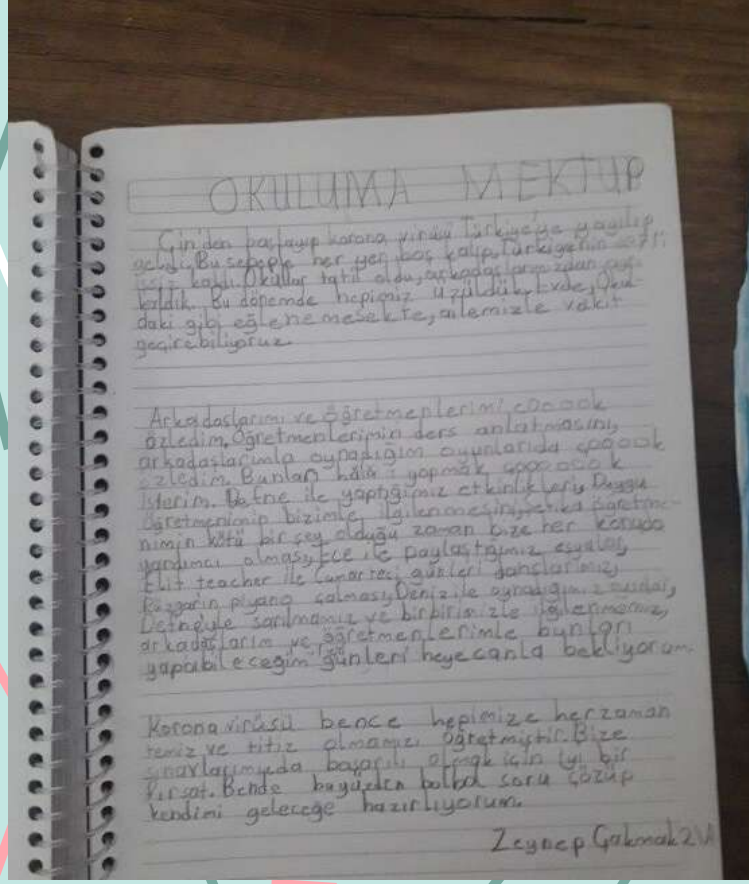 OKULUMA MEKTUP
Çin'den başlayıp korona virüsü Türkiye'ye yayılıp
geldi, Bu sebeple her yer boş kalıp, Türkiye'nin
ıssız kaldı. Okullar tatil oldu, arkadaşlarımızdan ay-
rıldık. Bu dönemde hepimiz üzüldük, Evde, Okul-
daki gibi eğlenemesekte, ailemizle vakit
geçirebiliyoruz.
Arkadaşlarımı ve öğretmenlerimi çooook
özledim, Öğretmenlerimin ders anlatmasını,
arkadaşlarımla oynadığım oyunlarıda çooook
özledim. Bunları hâlâ yapmak çooooook
isterim. Defne ile yaptığımız etkinlikleri, Duygu
öğretmenimin bizimle ilgilenmesini, öğretme-
nimin kötü bir şey olduğu zaman bize her konuda
yardımcı olması, Ece ile paylaştığımız eşyalar,
Elit teacher ile Cumartesi günleri danslarımız,
Rüzgarın piyano çalması, Deniz ile oynadığımız oyunlar,
Defneyle sarılmamız ve birbirimizle ilgilenmemiz,
arkadaşlarım ve öğretmenlerimle bunları
yapabileceğim günleri heyecanla bekliyorum.
Korona virüsü bence hepimize herzaman
temiz ve titiz olmamızı öğretmiştir. Bize
sınavlarımızda başarılı olmak için iyi bir
fırsat. Bende buyüzden bolbol soru çözüp
kendimi geleceğe hazırlıyorum.
Zeynep Çakmak 2/A